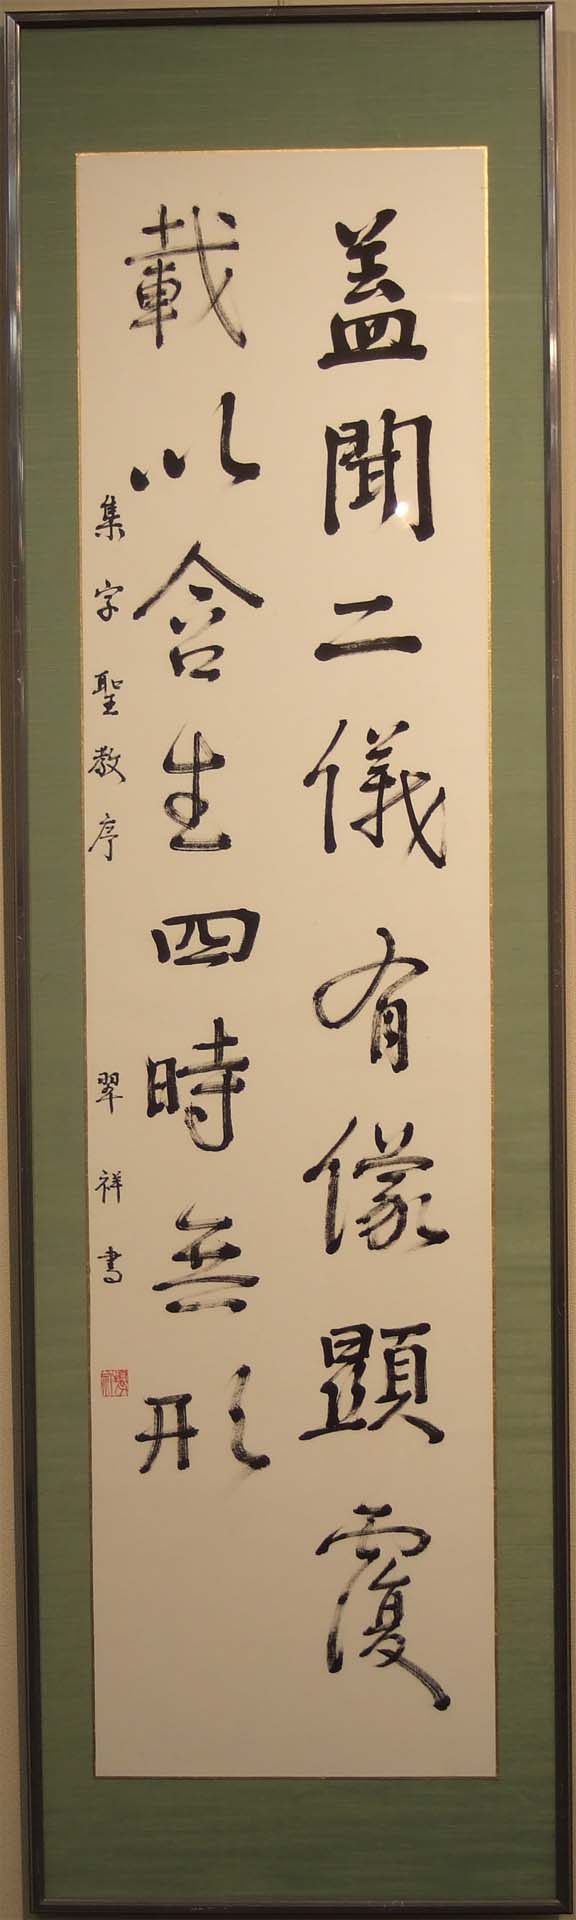 盖聞二儀有像顯覆
載以含生四時無形
集字聖教序　翠祥書